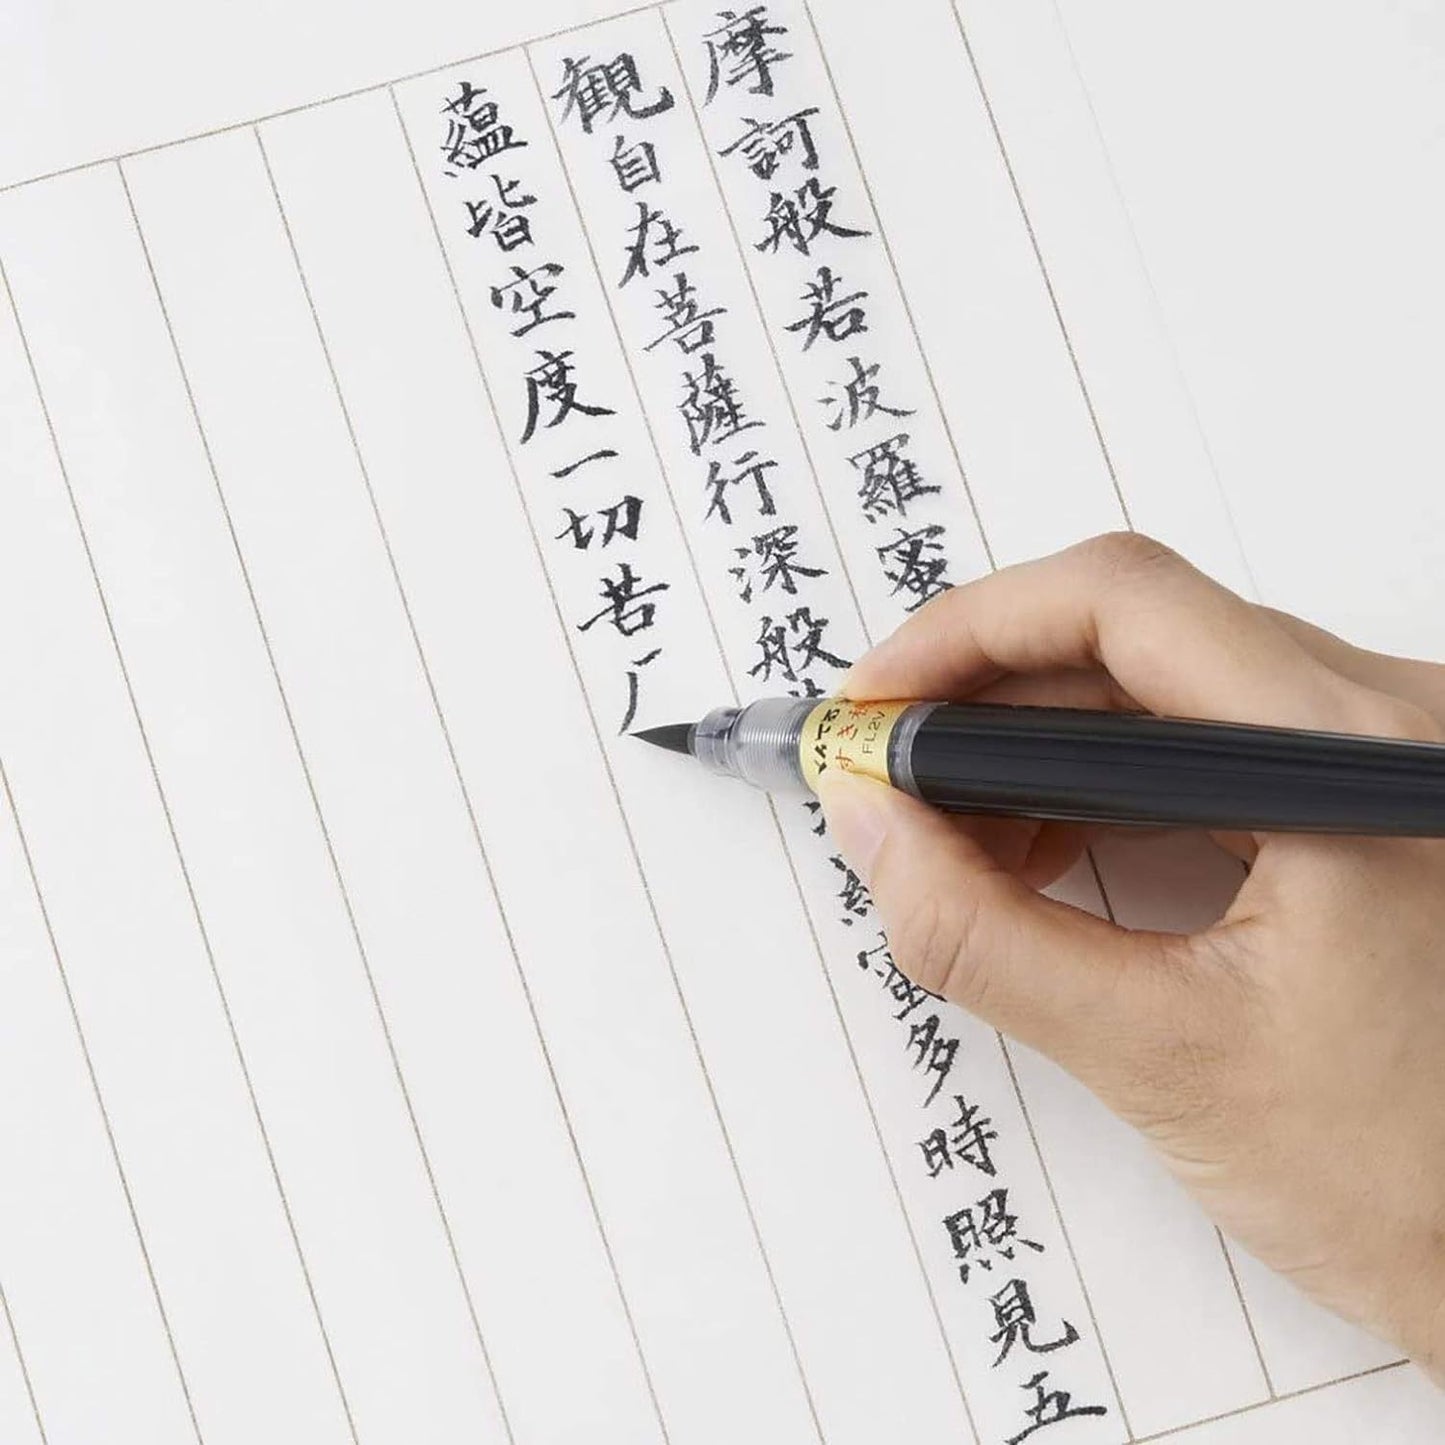 摩訶般若波羅蜜
観自在菩薩行深般
蜜多時照見五
蘊皆空度一切苦厂
ぺんてる
すき穂
FL2V